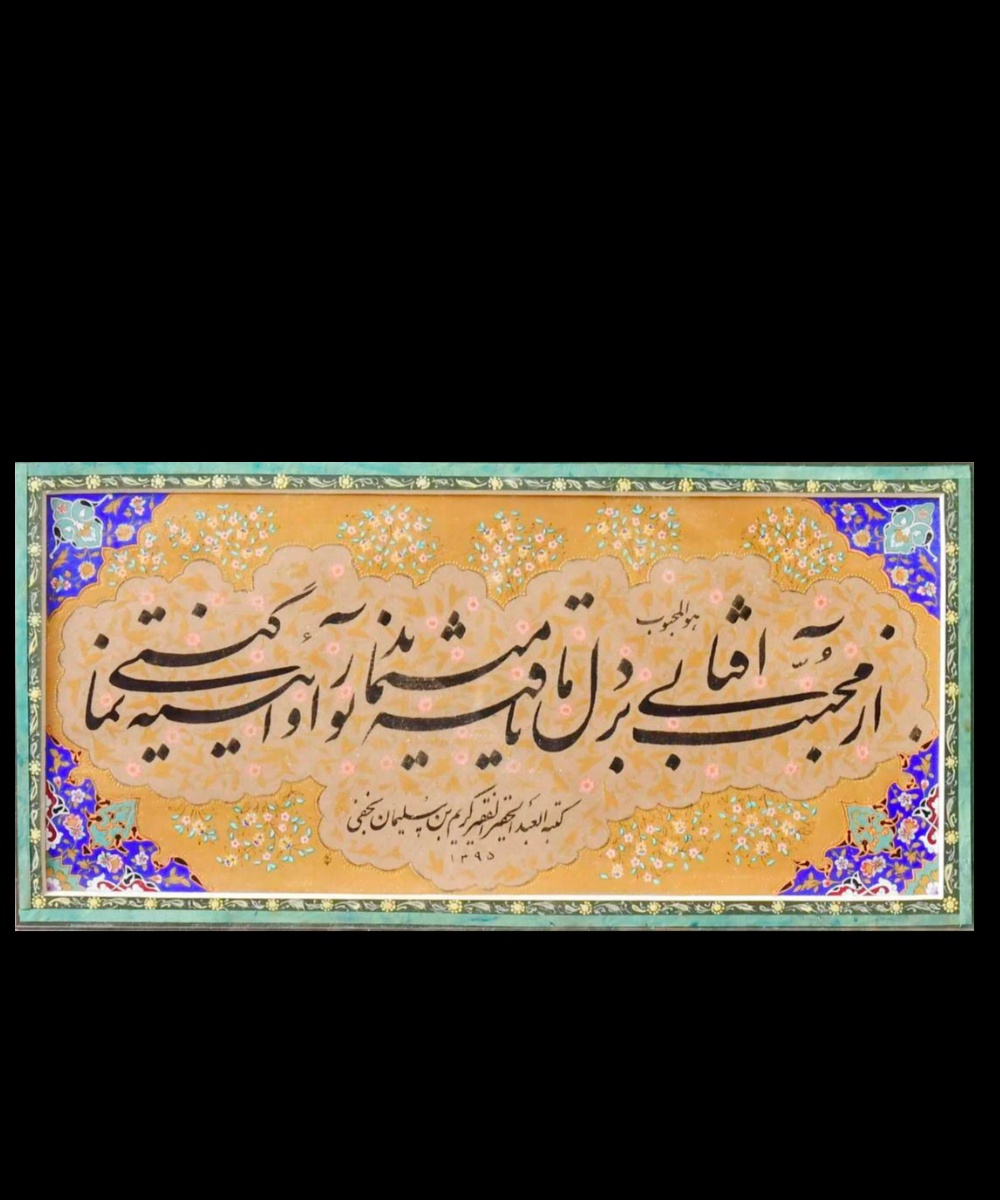 هو المحبوب
از محبت آفتابی بر دل ما تافته مینماید نور او آیینه گیتی نما
کتبه العبد الحقیر الفقیر کریم بن سلیمان
۱۳۹۵